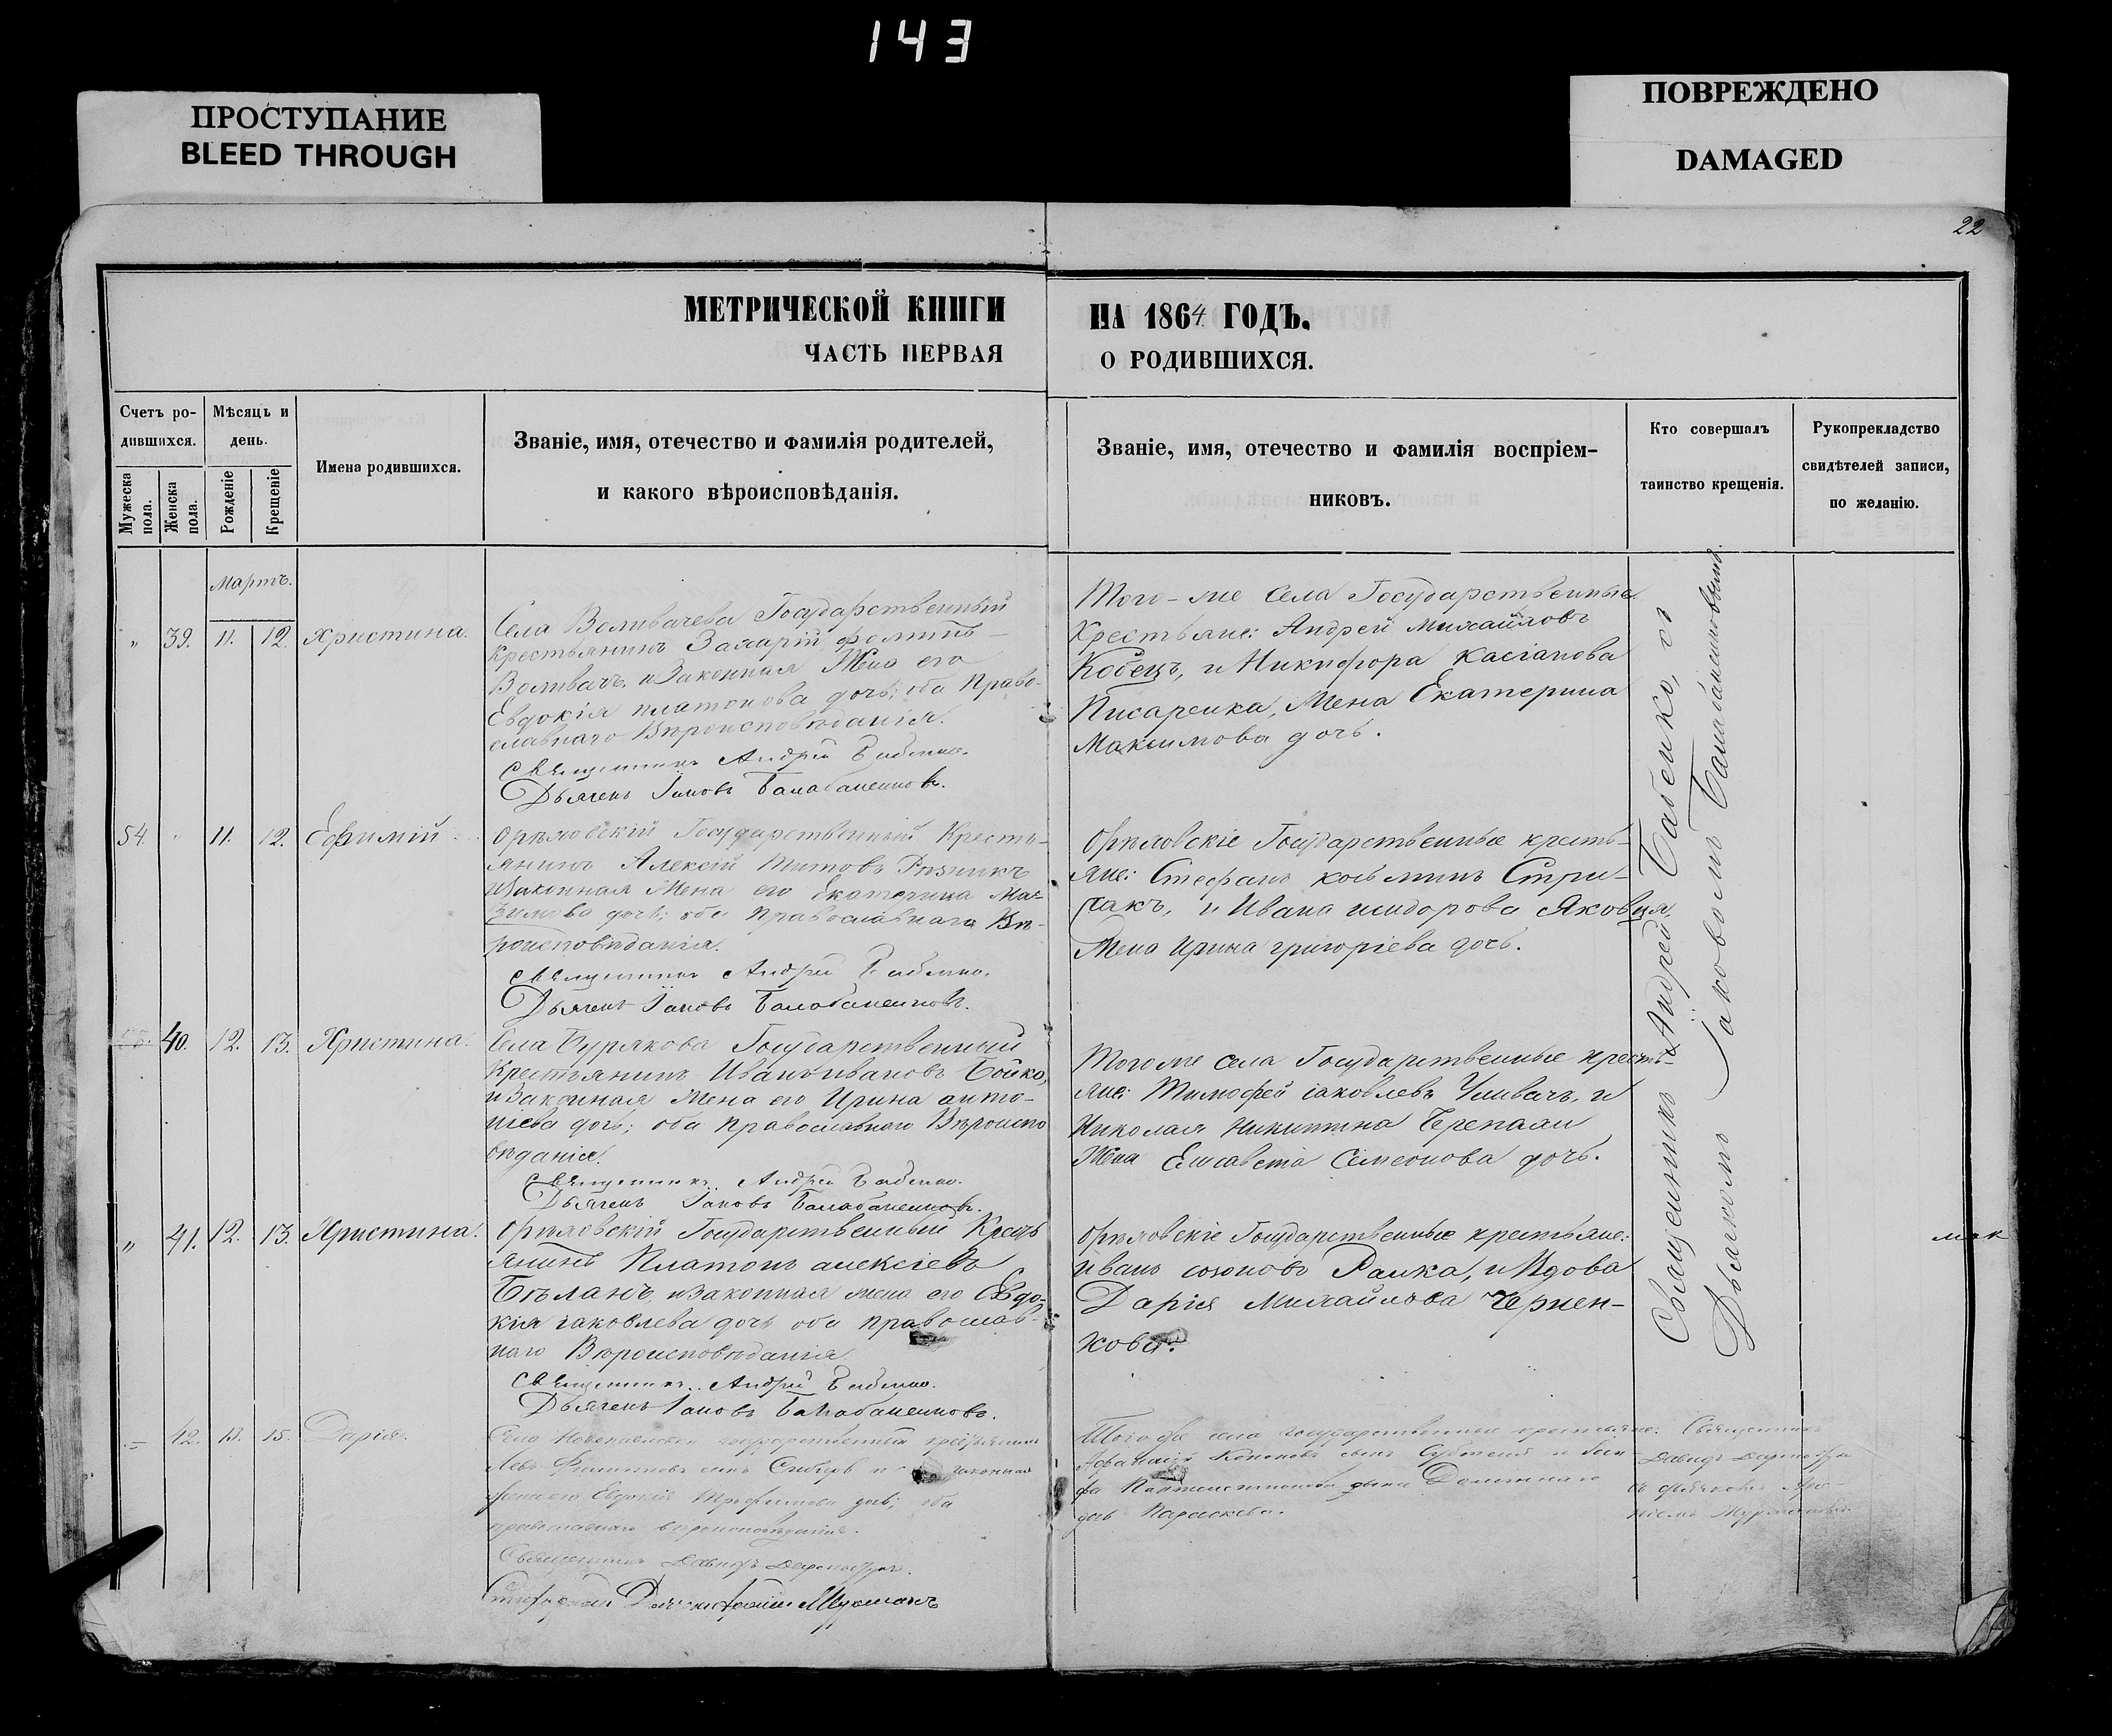 143
ПРОСТУПАНИЕ
BLEED THROUGH
ПОВРЕЖДЕНО
DAMAGED
22
МЕТРИЧЕСКОЙ КНИГИ
НА 1864 ГОДЪ.
ЧАСТЬ ПЕРВАЯ
О РОДИВШИХСЯ.
Счетъ ро-
дившихся.
Мужеска
пола.
Женска
пола.
Мѣсяць и
день.
Рожденіе
Крещеніе
Имена родившихся.
Званіе, имя, отечество и фамилія родителей,
и какого вѣроисповѣданія.
Званіе, имя, отечество и фамилія воспріем-
никовъ.
Кто совершалъ
таинство крещенія.
Рукоприкладство
свидѣтелей записи,
по желанію.
Мартъ.
" 39. 11. 12. Христина.
Села Государственный
Крестьянинъ Захарій
и Законная Жена его
Евдокія платонова дочь; оба Право-
славнаго Вѣроисповѣданія.
Священникъ Андрей Бабенко.
Дьячекъ Іаковъ Балабаненковъ.
Того-же Села Государственные
Крестьяне: Андрей михайловъ
Кобецъ, и Никифора касіанова
Писаренка, Жена Екатерина
Максимова дочь.
54. " 11. 12. Ефимій
Орѣховскій Государственный Кресть-
янинъ Алексій Титовъ Рѣзникъ
и Законная Жена его Екатерина
дочь; оба Православнаго Вѣ-
роисповѣданія.
Священникъ Андрей Бабенко.
Дьячекъ Іаковъ Балабаненковъ.
Орѣховскіе Государственные кресть-
яне: Стефанъ козьминъ Стри-
и Ивана исидорова Яковця,
Жена Ирина григоріева дочь.
40. 12. 13. Христина.
Села Бурякова Государственный
Крестьянинъ Иванъ ивановъ Бойко,
и Законная Жена его Ирина анто-
ніева дочь; оба Православнаго Вѣроиспо
вѣданія.
Священникъ Андрей Бабенко.
Дьячекъ Іаковъ Балабаненковъ.
Тогоже села Государственные кресть-
яне: Тимофей іаковлевъ и
Николая Никитина Черепахи
Жена Елисавета Симеонова дочь.
" 41. 12. 13. Христина.
Орѣховскій Государственный Кресть
янинъ Платонъ алексіевъ
Бѣланъ, и Законная жена его Евдо-
кія іаковлева дочь оба православ-
наго Вѣроисповѣданія
Священникъ Андрей Бабенко.
Дьячекъ Іаковъ Балабаненковъ.
Орѣховскіе Государственные крестьяне:
Иванъ созоновъ и Вдова
Дарія Михайлова Чернен-
кова.
Священникъ Андрей Бабенко, съ
Дьячкомъ Іаковомъ Балабаненковымъ.
42. 13. 15. Дарія.
Села государственный крестьянинъ
Левъ Филиповъ сынъ и законная
жена его Евдокія Трофимова дочь; оба
православнаго вѣроисповѣданія.
Священникъ Давидъ
Того же села государственные крестьяне:
дочь Параскева.
Священникъ
Давидъ